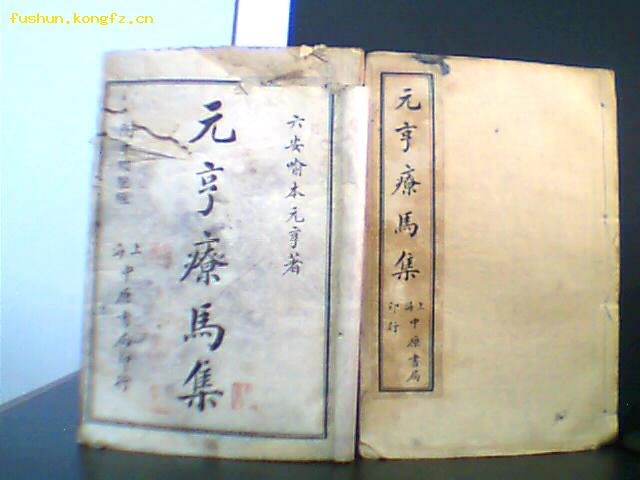 fushun.kongfz.cn
六安喻本元亨著
元亨療馬集
上海中原書局印行
元亨療馬集
上海中原書局印行